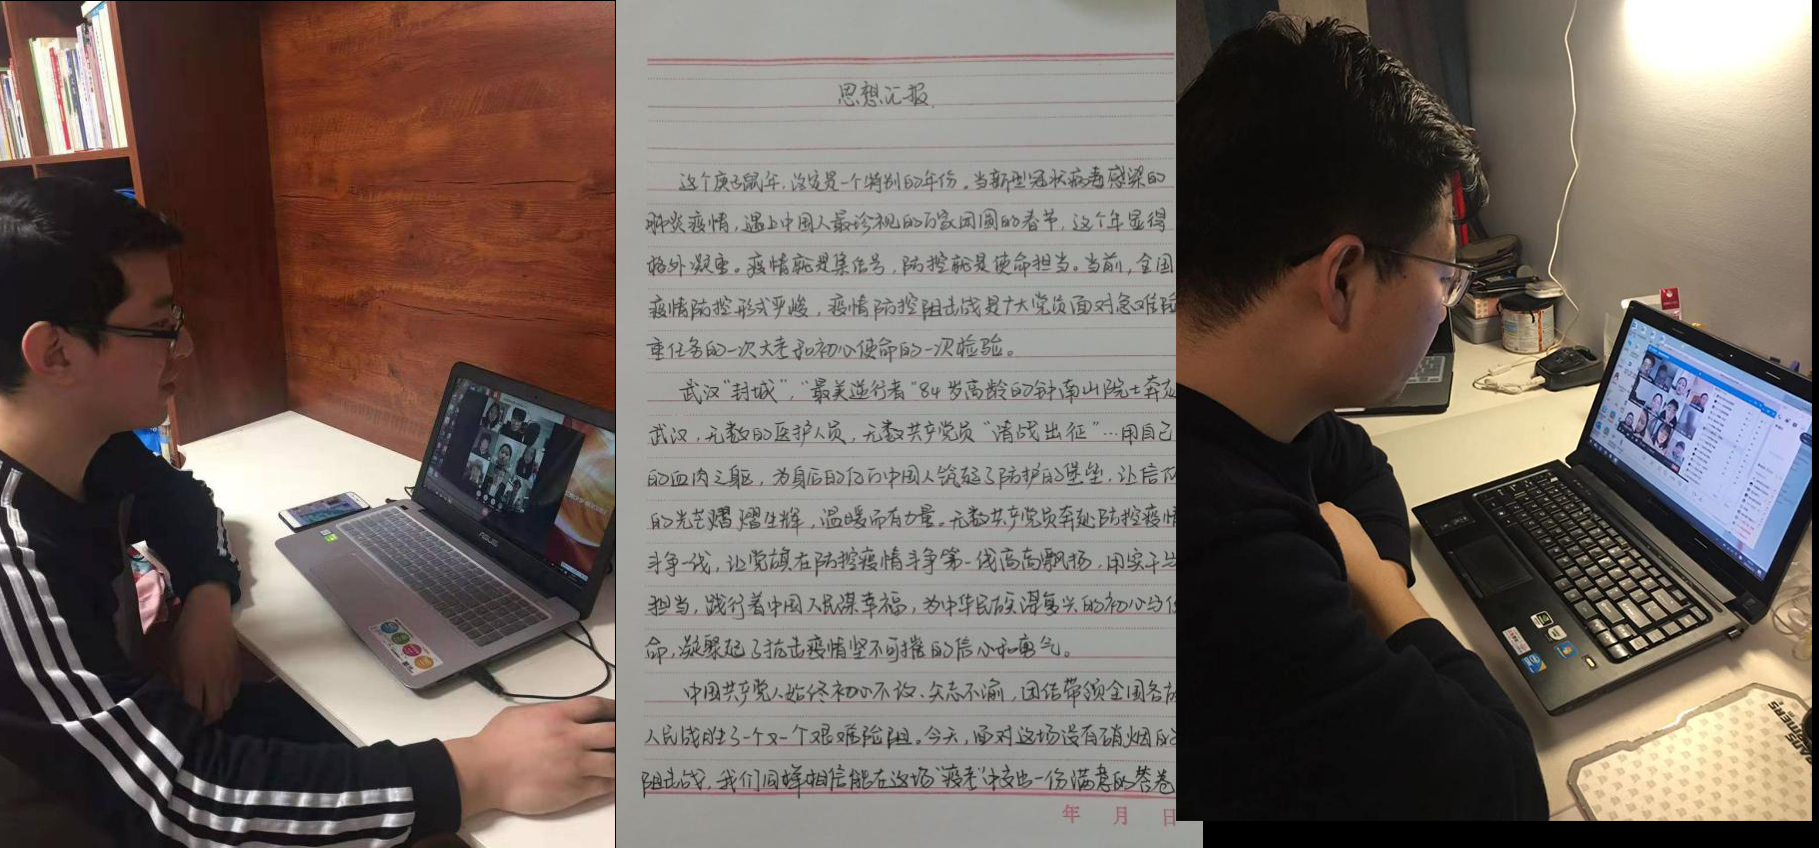 思想汇报
这个庚子鼠年,注定是一个特别的年份。当新型冠状病毒感染的
肺炎疫情,遇上中国人最珍视的万家团圆的春节,这个年显得
格外凝重。疫情就是集结号,防控就是使命担当。当前,全国
疫情防控形式严峻,疫情防控阻击战是广大党员面对急难险
重任务的一次大考和初心使命的一次检验。
武汉“封城”,“最美逆行者”84岁高龄的钟南山院士奔赴
武汉,无数的医护人员,无数共产党员“请战出征”…用自己
的血肉之躯,为身后的亿万中国人筑起了防护的堡垒,让信仰
的光芒熠熠生辉,温暖而有力量。无数共产党员奔赴防控疫情
斗争一线,让党旗在防控疫情斗争第一线高高飘扬,用实干与
担当,践行着中国人民谋幸福,为中华民族谋复兴的初心与使
命,凝聚起了抗击疫情坚不可摧的信心和勇气。
中国共产党人始终初心不改、矢志不渝,团结带领全国各族
人民战胜了一个又一个艰难险阻。今天,面对这场没有硝烟的
阻击战,我们同样相信能在这场“疫考”中交出一份满意的答卷
年 月 日
ASUS